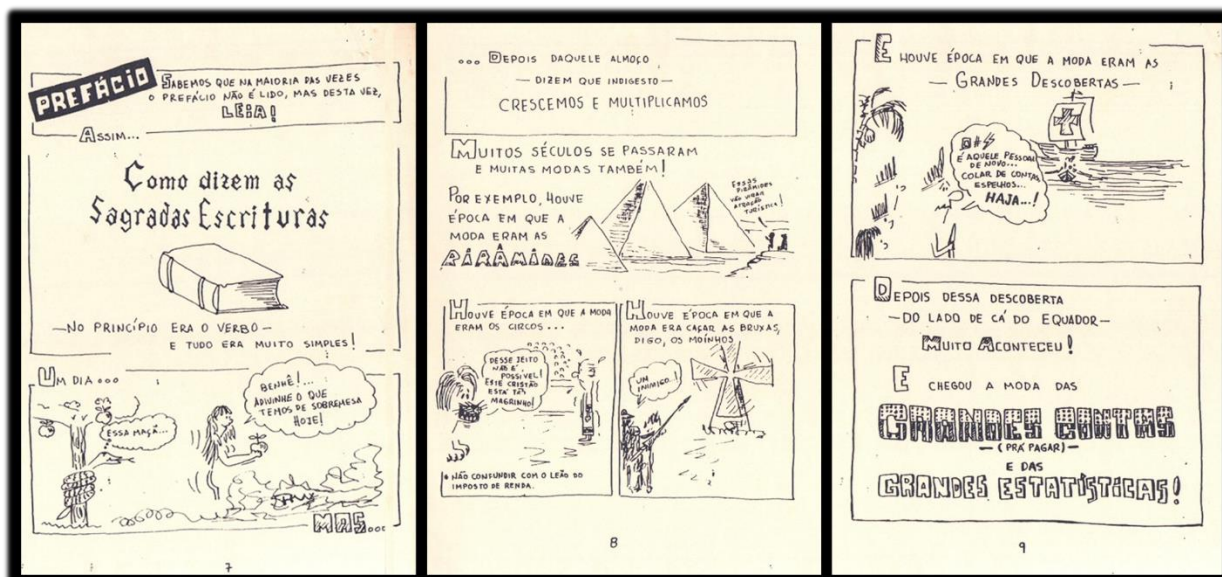 PREFÁCIO
SABEMOS QUE NA MAIORIA DAS VEZES
O PREFÁCIO NÃO É LIDO, MAS DESTA VEZ,
LEIA!
ASSIM...
Como dizem as
Sagradas Escrituras
—NO PRINCÍPIO ERA O VERBO—
E TUDO ERA MUITO SIMPLES!
UM DIA...
ESSA MAÇÃ...
BENHÊ!...
ADIVINHE O QUE
TEMOS DE SOBREMESA
HOJE!
MAS...
7
... DEPOIS DAQUELE ALMOÇO
— DIZEM QUE INDIGESTO —
CRESCEMOS E MULTIPLICAMOS
MUITOS SÉCULOS SE PASSARAM
E MUITAS MODAS TAMBÉM!
POR EXEMPLO, HOUVE
ÉPOCA EM QUE A
MODA ERAM AS
PIRÂMIDES
ESSAS
PIRÂMIDES
VÃO VIRAR
ATRAÇÃO
TURÍSTICA!
HOUVE ÉPOCA EM QUE A MODA
ERAM OS CIRCOS...
DESSE JEITO
NÃO É
POSSÍVEL!
ESTE CRISTÃO
ESTÁ TÃO
MAGRINHO!
* NÃO CONFUNDIR COM O LEÃO DO
IMPOSTO DE RENDA.
HOUVE ÉPOCA EM QUE A
MODA ERA CAÇAR AS BRUXAS,
DIGO, OS MOÍNHOS
UN
INIMIGO..!
8
E HOUVE ÉPOCA EM QUE A MODA ERAM AS
— GRANDES DESCOBERTAS —
É AQUELE PESSOAL
DE NOVO...
COLAR DE CONTAS,
ESPELHOS...
HAJA...!
DEPOIS DESSA DESCOBERTA
—DO LADO DE CÁ DO EQUADOR—
MUITO ACONTECEU!
E CHEGOU A MODA DAS
GRANDES CONTAS
—(PRÁ PAGAR)—
E DAS
GRANDES ESTATÍSTICAS!
9